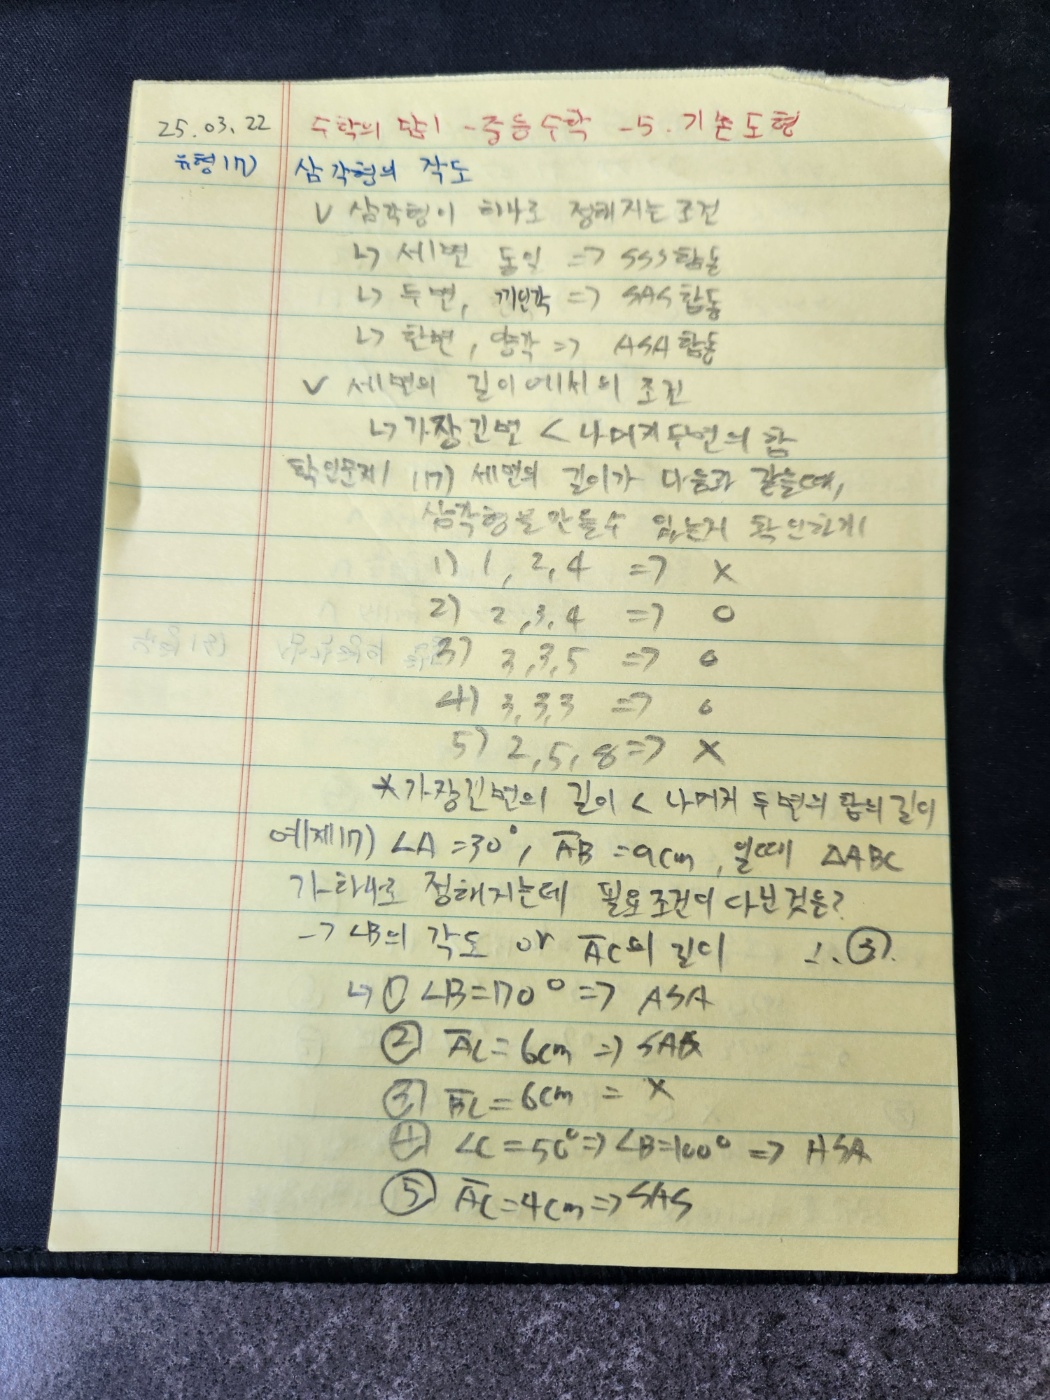 25.03.22 수학의 답 1 - 중등수학 - 5. 기본도형
유형 17) 삼각형의 작도
∨ 삼각형이 하나로 정해지는 조건
↳ 세변 동일 => SSS합동
↳ 두변, 끼인각 => SAS합동
↳ 한변, 양각 => ASA합동
∨ 세변의 길이에서의 조건
↳ 가장긴변 < 나머지두변의 합
확인문제 17) 세변의 길이가 다음과 같을때,
삼각형을 만들수 있는지 확인하기
1) 1, 2, 4 => X
2) 2, 3, 4 => O
3) 3, 3, 5 => O
4) 3, 3, 3 => O
5) 2, 5, 8 => X
* 가장긴변의 길이 < 나머지 두변의 합의 길이
예제17) ∠A = 30°, A̅B̅ = 9cm, 일때 △ABC
가 하나로 정해지는데 필요조건이 아닌것은?
→ ∠B의 각도 or A̅C̅의 길이 ∴ ③.
↳ ① ∠B = 70° => ASA
② A̅C̅ = 6cm => SAS
③ B̅C̅ = 6cm = X
④ ∠C = 50° => ∠B = 100° => ASA
⑤ A̅C̅ = 4cm => SAS